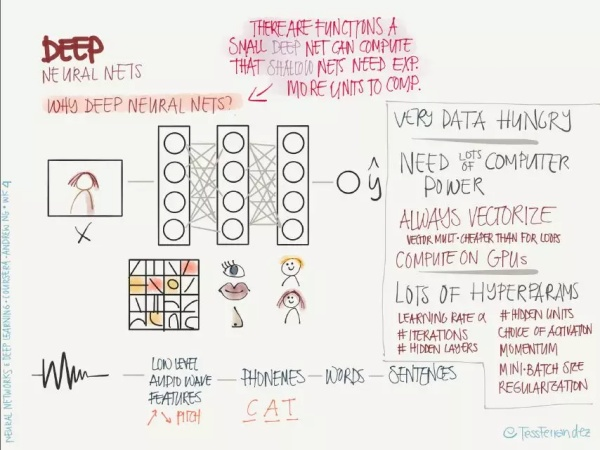 DEEP
NEURAL NETS
THERE ARE FUNCTIONS A
SMALL DEEP NET CAN COMPUTE
THAT SHALLOW NETS NEED EXP.
MORE UNITS TO COMP.
WHY DEEP NEURAL NETS?
X
ŷ
LOW LEVEL
AUDIO WAVE
FEATURES
PITCH
PHONEMES
C A T
WORDS
SENTENCES
VERY DATA HUNGRY
NEED LOTS OF COMPUTER
POWER
ALWAYS VECTORIZE
VECTOR MULT. CHEAPER THAN FOR LOOPS
COMPUTE ON GPUs
LOTS OF HYPERPARAMS
LEARNING RATE α
# ITERATIONS
# HIDDEN LAYERS
# HIDDEN UNITS
CHOICE OF ACTIVATION
MOMENTUM
MINI-BATCH SIZE
REGULARIZATION
NEURAL NETWORKS & DEEP LEARNING • COURSERA • ANDREW NG • WK 4
© TessFerrandez